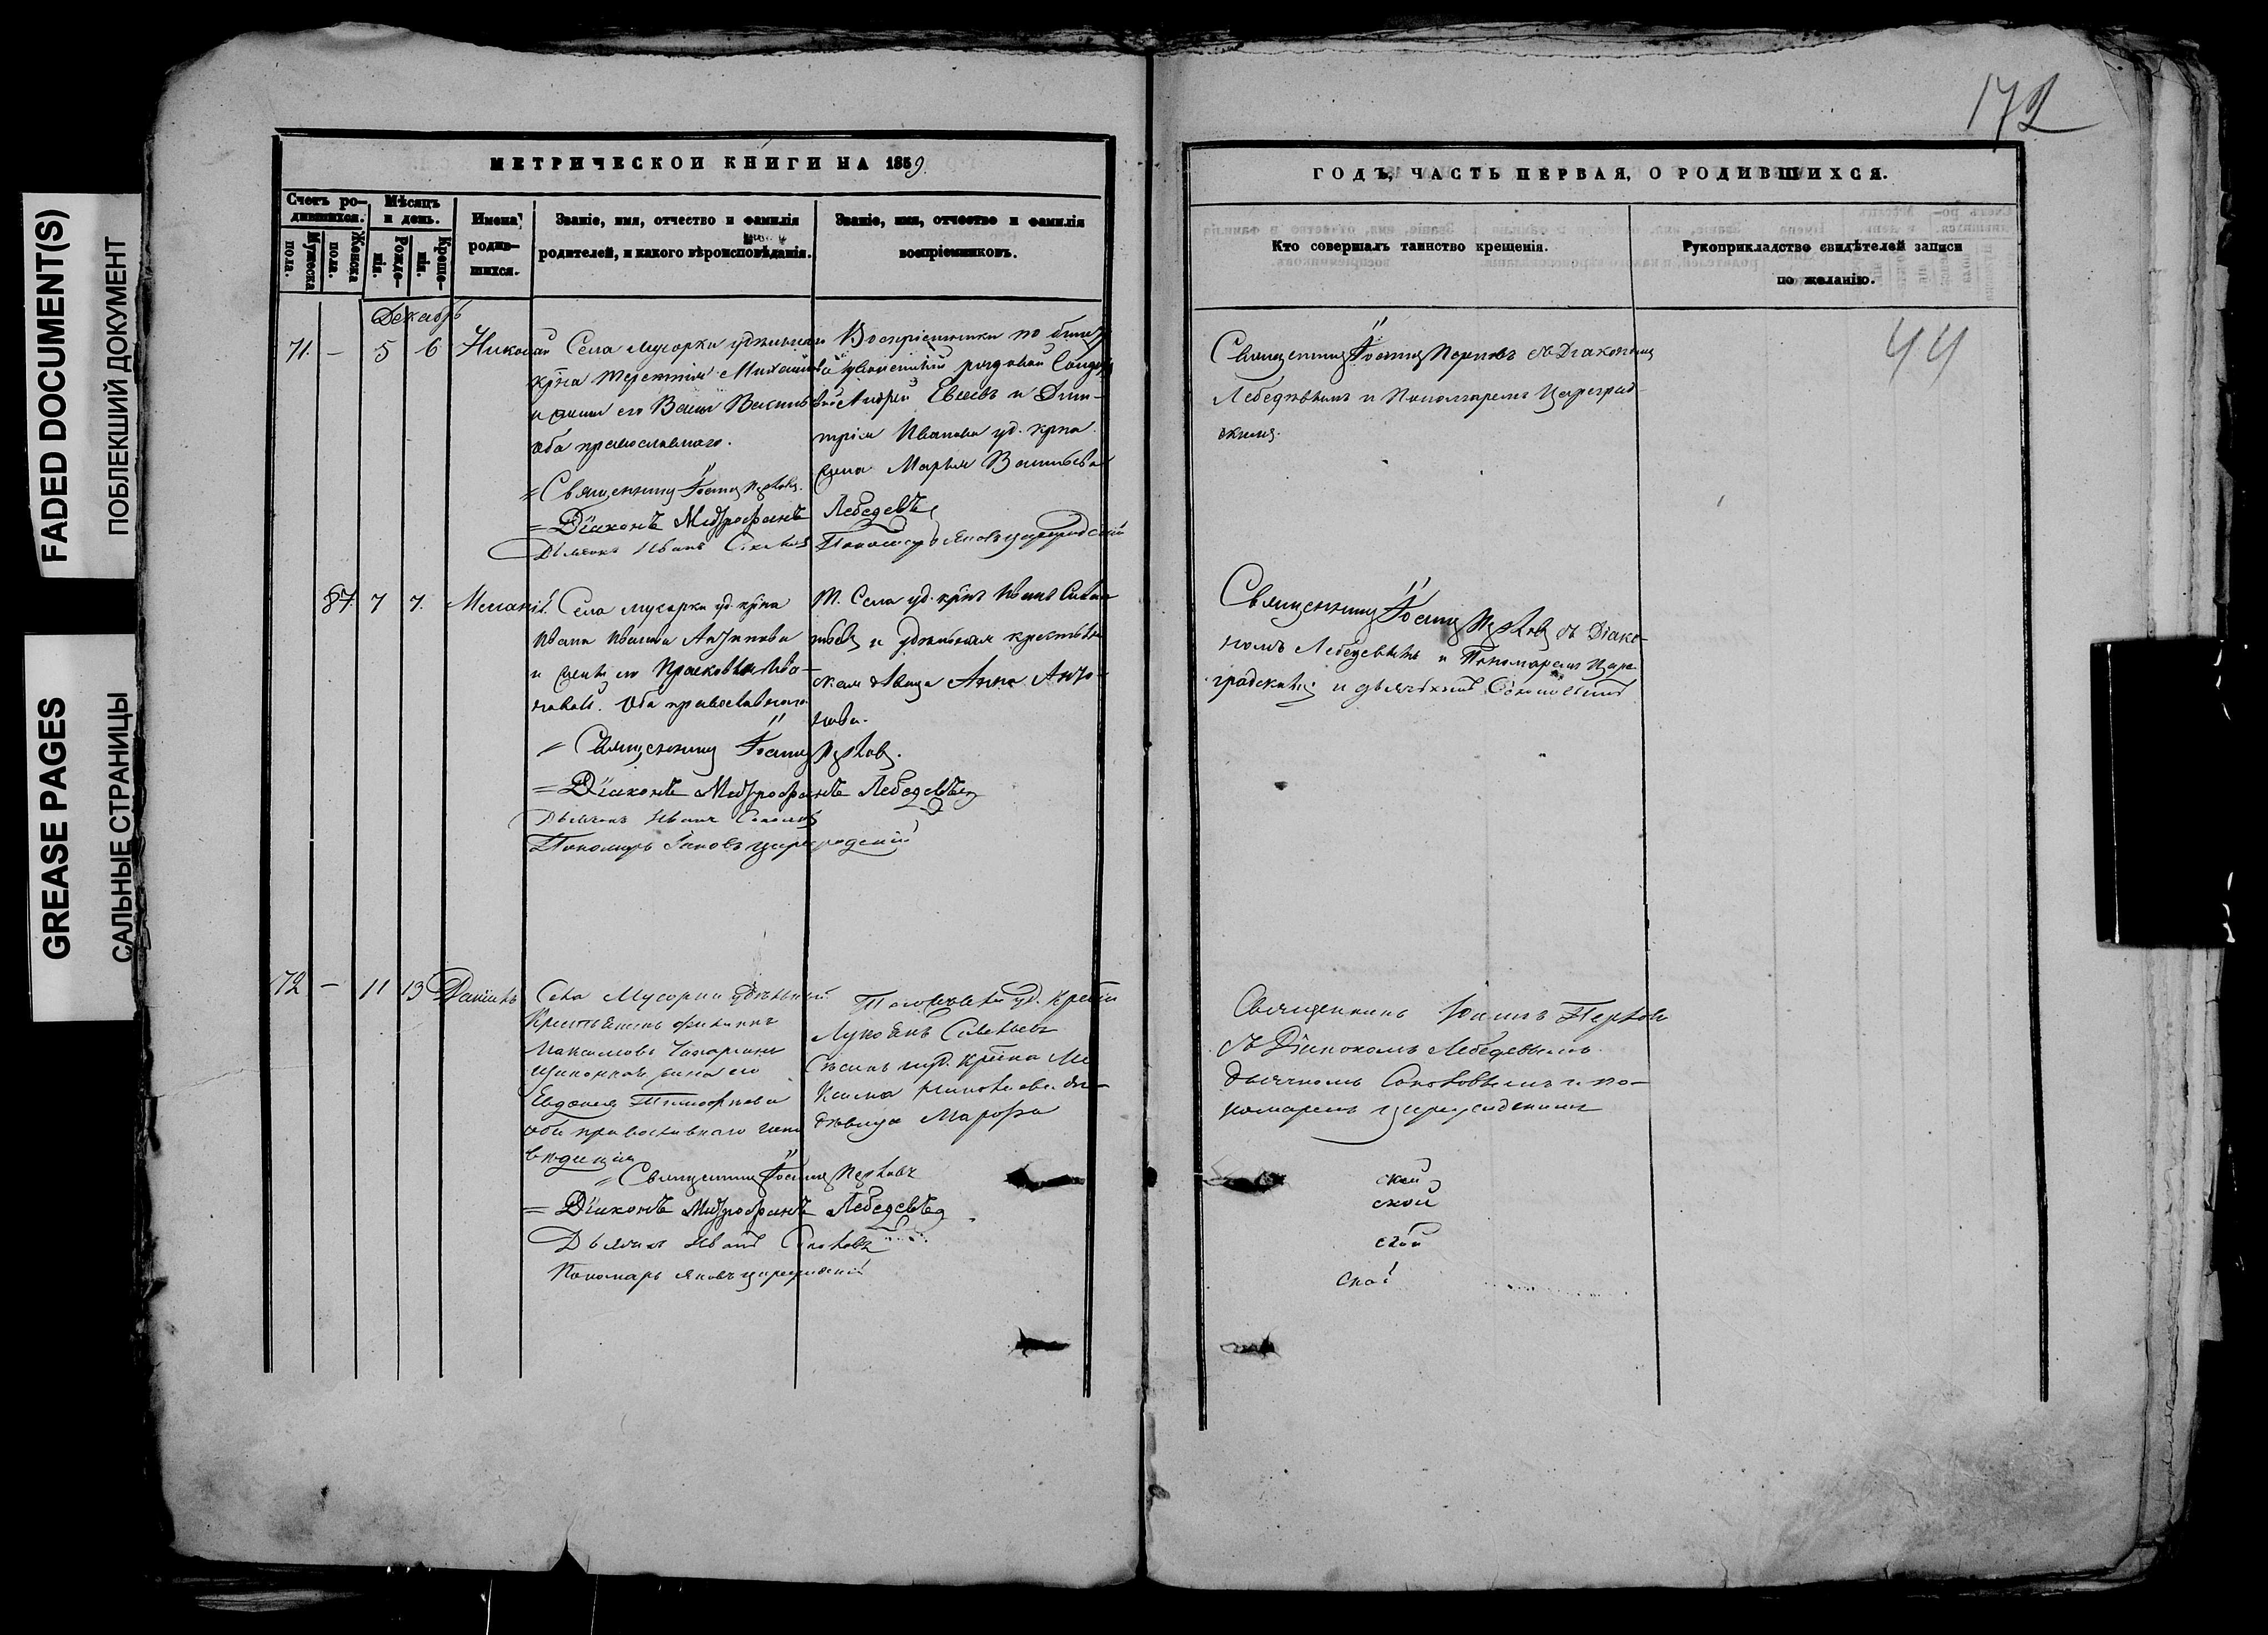 FADED DOCUMENT(S)
ПОБЛЕКШИЙ ДОКУМЕНТ
GREASE PAGES
САЛЬНЫЕ СТРАНИЦЫ
МЕТРИЧЕСКОЙ КНИГИ НА 1859.
Счетъ родившихся.
Мужеска пола.
Женска пола.
Мѣсяцъ и день.
Рожденія.
Крещенія.
Имена родившихся.
Званіе, имя, отчество и фамилія
родителей, и какого вѣроисповѣданія.
Званіе, имя, отчество и фамилія
воспріемниковъ.
Декабрь
71. — 5 6 Николай
Села Мусорки удѣльнаго
крна Терентія Михайлова
и жены его
оба православнаго.
=Священникъ Іоаннъ Перловъ.
=Діаконъ Митрофанъ Лебедевъ
Дьячекъ Иванъ Соколовъ
Пономарь Яковъ Цареградскій
Воспріемники по билету
рядовой
Андрей Евсеевъ и Дми-
трія Иванова уд. крна
жена Марья Васильева
87. 7 7. Меланія.
Села Мусорки уд. крна
Ивана Иванова Антипова
и жены его Прасковьи Ива-
новой. Оба православнаго
= Священникъ Іоаннъ Перловъ.
= Діаконъ Митрофанъ Лебедевъ
Дьячекъ Иванъ Соколовъ
Пономарь Іаковъ Цареградскій
Т. Села уд. крнъ Иванъ
и удѣльная крестьян-
ская дѣвица Анна Анто-
нова.
72 — 11 13 Даніилъ
Села Мусорки удѣльный
Крестьянинъ Филиппъ
Максимовъ
жена его
Евдокія Тимофеева
оба православнаго испо
ведиція
= Священникъ Іоаннъ Перловъ
= Діаконъ Митрофанъ Лебедевъ
Дьячекъ Иванъ Соколовъ
Пономарь Яковъ Цареградскій
Тогоже села уд. крестьян
Лукоянъ Савельевъ
уд. крсна Ма
ксима
дѣвица Марфа
172
ГОДЪ, ЧАСТЬ ПЕРВАЯ, О РОДИВШИХСЯ.
Кто совершалъ таинство крещенія.
Рукоприкладство свидѣтелей записи
по желанію.
44
Священникъ Іоаннъ Перловъ съ Діакономъ
Лебедевымъ и Пономаремъ Цареград-
скимъ.
Священникъ Іоаннъ Перловъ съ Діако-
номъ Лебедевымъ и Пономаремъ Царе-
градскимъ и дьячкомъ Соколовымъ
Священникъ Іоаннъ Перловъ
съ Діакономъ Лебедевымъ
дьячкомъ Соколовымъ и по-
номаремъ Цареградскимъ
ской
ской
ской
ской